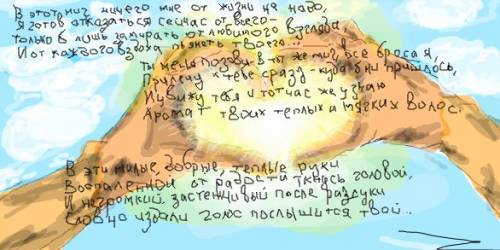 В этот миг ничего мне от жизни не надо,
Я готов отказаться сейчас от всего -
Только б лишь замирать от любимого взгляда
И от каждого вздоха пьянеть твоего...
Ты меня позови - в ты же миг, всё бросая,
Прилечу к тебе сразу - куда б ни пришлось,
И увижу тебя и тотчас же узнаю
Аромат твоих теплых и мягких волос.
В эти милые, добрые, теплые руки
Воспаленной от радости ткнусь головой,
И негромкий, застенчивый после разлуки
Словно издали голос послышится твой...